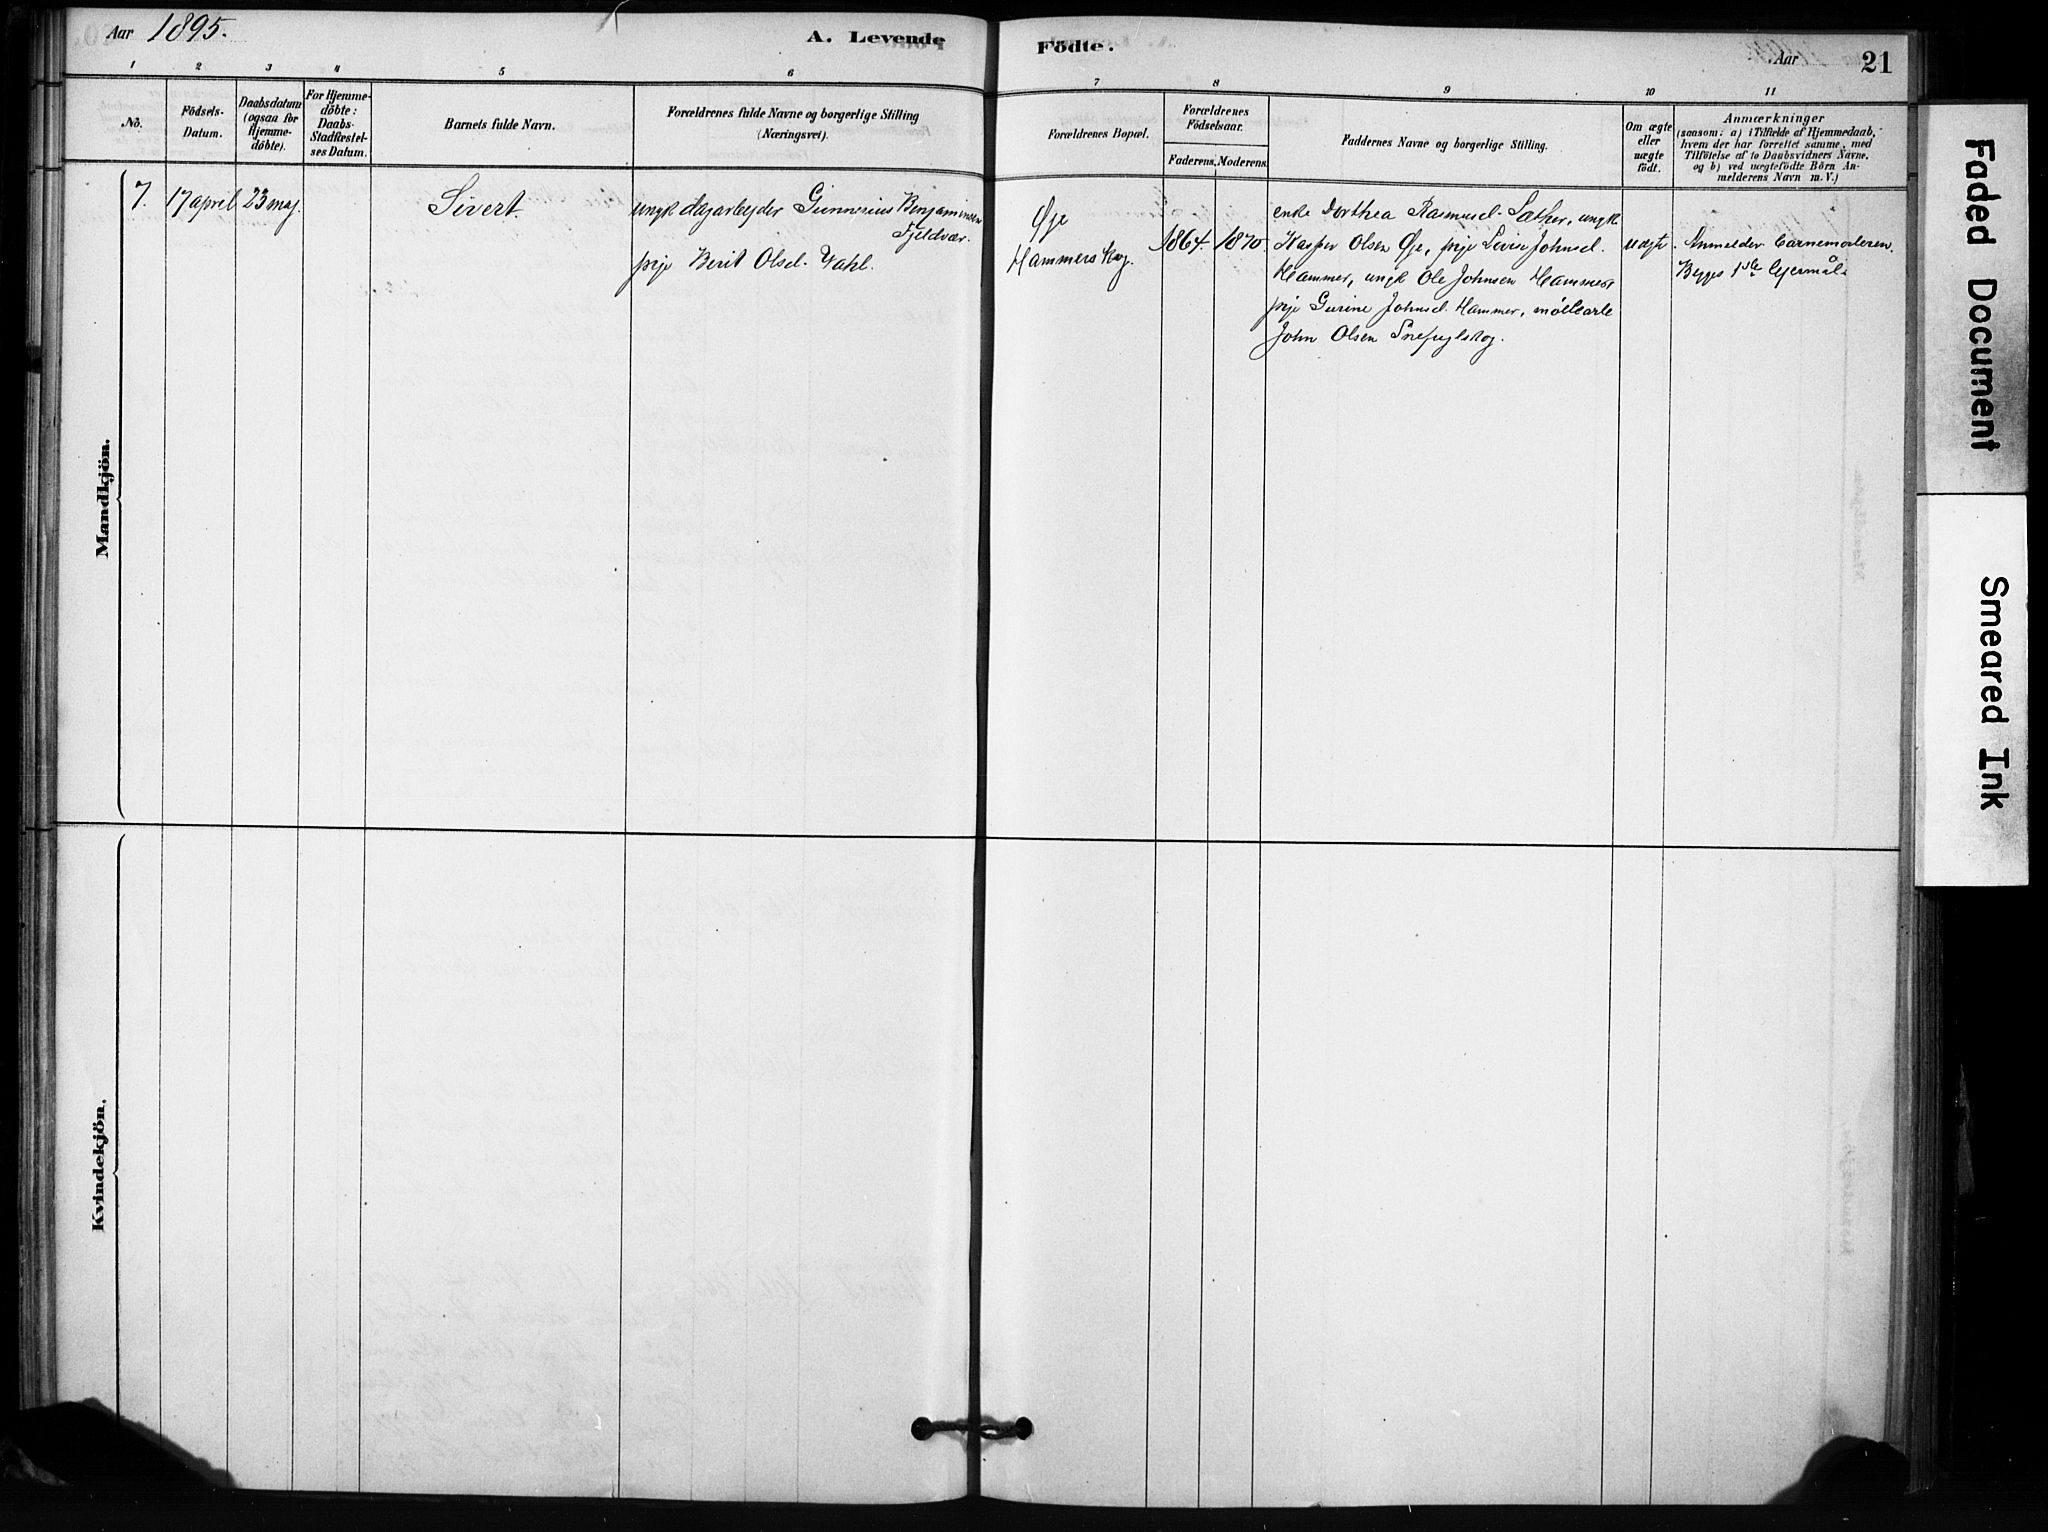 Aar 1895.
A. Levende
Födte.
Aar
21
1
2
3
4
5
6
7
8
9
10
11
No.
Födsels-
Datum.
Daabsdatum
(ogsaa for
Hjemme-
döbte).
For Hjemme-
döbte:
Daabs-
Stadfæstel-
ses Datum.
Barnets fulde Navn.
Forældrenes fulde Navne og borgerlige Stilling
(Næringsvei).
Forældrenes Bopæl.
Forældrenes
Födselsaar.
Faderens.
Moderens.
Faddernes Navne og borgerlige Stilling.
Om ægte
eller
uægte
födt.
Anmærkninger
(saasom: a) i Tilfælde af Hjemmedaab,
hvem der har forrettet samme, med
Tilföielse af to Daabsvidners Navne,
og b) ved uægtefödte Börn An-
melderens Navn m. V.)
Mandkjön.
7.
17 april
23 maj
Sivert.
ungk dagarbejder Gunnerius Benjaminsen
Fjeldvær.
pige Berit Olsd. Vahl.
Øje
Hammerskog.
1864.
1870.
enke Dorthea Rasmusd. Sæther, ungk
Kasper Olsen Øje, pige Lovise Johnsd.
Hammer, ungk Ole Johnsen Hammer
pige Gurine Johnsd. Hammer,
John Olsen Snefuglskog.
uægte
Anmelder barnemoderen.
Begges 1ste lejermål.
Kvindekjön.
Faded Document
Smeared Ink